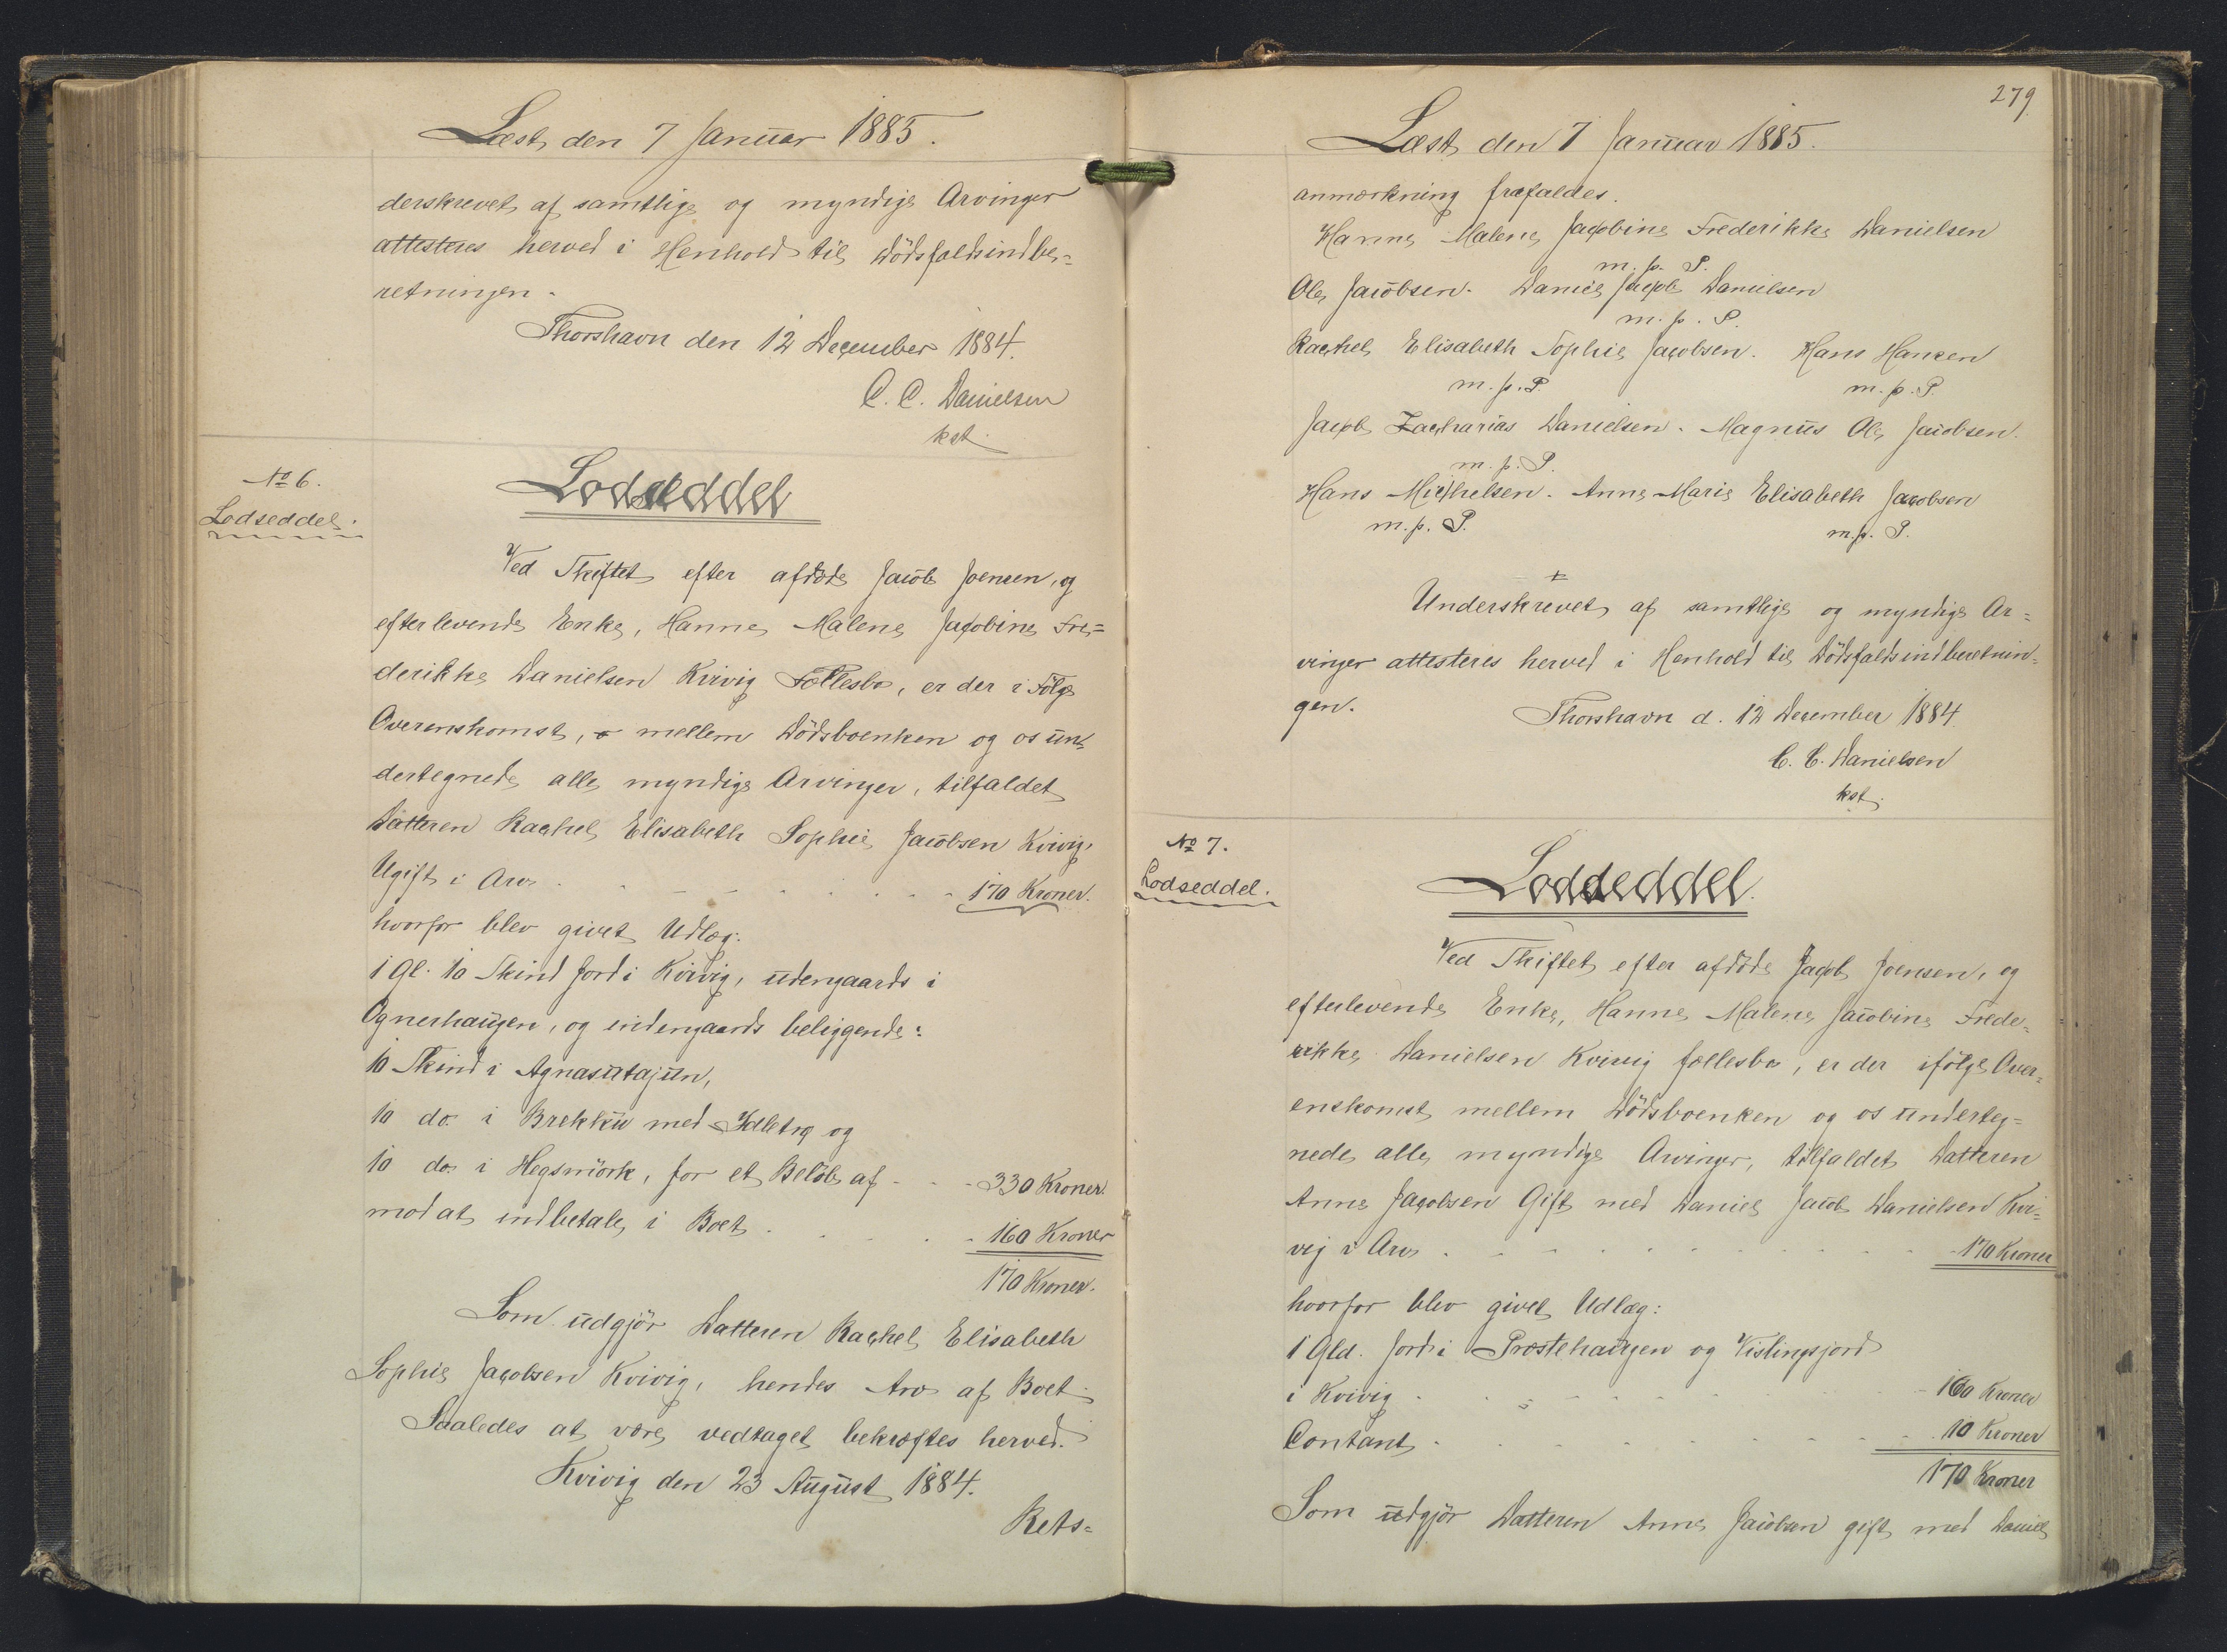 Læst den 7 Januar 1885.
derskrevet af samtlige og myndige Arvinger
attesteres herved i Henhold til Dödsfaldsindbe=
retningen.
Thorshavn den 12 December 1884.
C. C. Danielsen
kst.
No 6.
Lodseddel.
Lodseddel
Ved Skiftet efter afdöde Jacob Joensen, og
efterlevende Enke, Hanne Malene Jacobine Fre=
derikke Danielsen Kvivig Fællesbo, er der i Fölge
Overenskomst, mellem Dödsboenken og os un
dertegnede alle myndige Arvinger, tilfaldet
Datteren Rachel Elisabeth Sophie Jacobsen Kvivig,
Ugift i Arv . . . 170 Kroner.
hvorfor blev givet Udlæg:
1 Gl. 10 Skind Jord i Kvivig, udengaards i
Ognerhaugen, og indengaards beliggende:
10 Skind i Agnasutajun,
10 do. i Brekku med og
10 do. i Hegsmörk, for et Belöb af - - - 330 Kroner.
mod at indbetale i Boet . . . 160 Kroner
170 Kroner.
Som udgjör Datteren Rachel Elisabeth
Sophie Jacobsen Kvivig, hendes Arv af Boet.
Saaledes at være vedtaget bekræftes herved.
Kvivig den 23 August 1884.
Rets=
279
Læst den 7 Januar 1885.
anmærkning frafaldes.
Hanne Malene Jacobine Frederikke Danielsen
m. p. P.
Ole Jacobsen. Daniel Jacob Danielsen
m. p. P.
Rachel Elisabeth Sophie Jacobsen. Hans Hansen
m. p. P. m. p. P.
Jacob Zacharias Danielsen. Magnus Ole Jacobsen.
m. p. P.
Hans Michelsen. Anne Marie Elisabeth Jacobsen
m. p. P. m. p. P.
Underskrevet af samtlige og myndige Ar=
vinger attesteres herved i Henhold til Dödsfaldsindberetnin=
gen.
Thorshavn d. 12 December 1884.
C. C. Danielsen
kst.
No 7.
Lodseddel.
Lodseddel.
Ved Skiftet efter afdöde Jacob Joensen, og
efterlevende Enke, Hanne Malene Jacobine Frede=
rikke Danielsen Kvivig fællesbo, er der ifölge Over=
enskomst mellem Dödsboenken og os underteg=
nede alle myndige Arvinger, tilfaldet Datteren
Anne Jacobsen Gift med Daniel Jacob Danielsen Kvi=
vig i Arv . . . 170 Kroner
hvorfor blev givet Udlæg:
1 Gld. Jord i Præstehaugen og Vistingsjord
i Kvivig . . . 160 Kroner
Contant . . . 10 Kroner
170 Kroner
Som udgjör Datteren Anne Jacobsen gift med Daniel